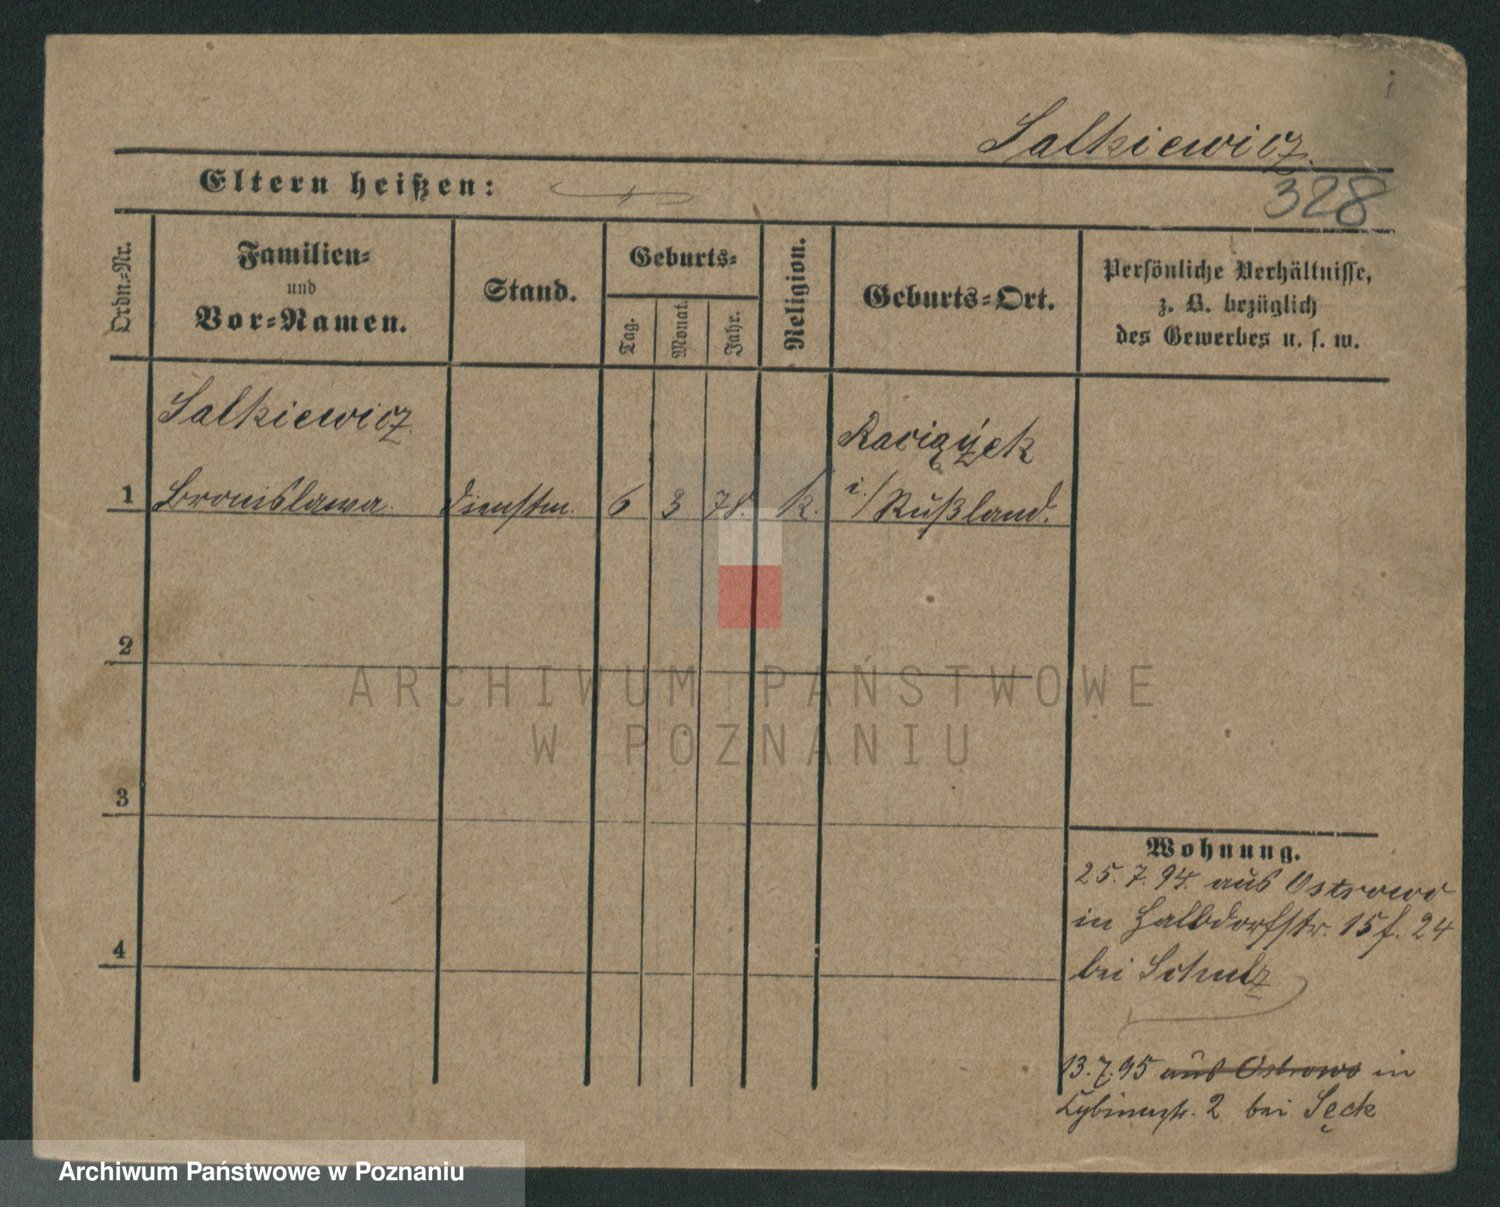 Salkiewicz.
Eltern heißen:
328
Ordn.-Nr.
Familien-
und
Vor-Namen.
Stand.
Geburts-
Tag.
Monat.
Jahr.
Religion.
Geburts-Ort.
Persönliche Verhältnisse,
z. B. bezüglich
des Gewerbes u. s. w.
Salkiewicz.
Raciążek
1 Bronislawa. Dienstm. 6 3 78. k. i./Rußland.
2
ARCHIWUM PAŃSTWOWE
W POZNANIU
3
Wohnung.
25. 7. 94. aus Ostrowo
in Halbdorfstr. 15 f. 24
4
bei Schulz
13.7.95 aus Ostrowo in
2 bei Sęck
Archiwum Państwowe w Poznaniu